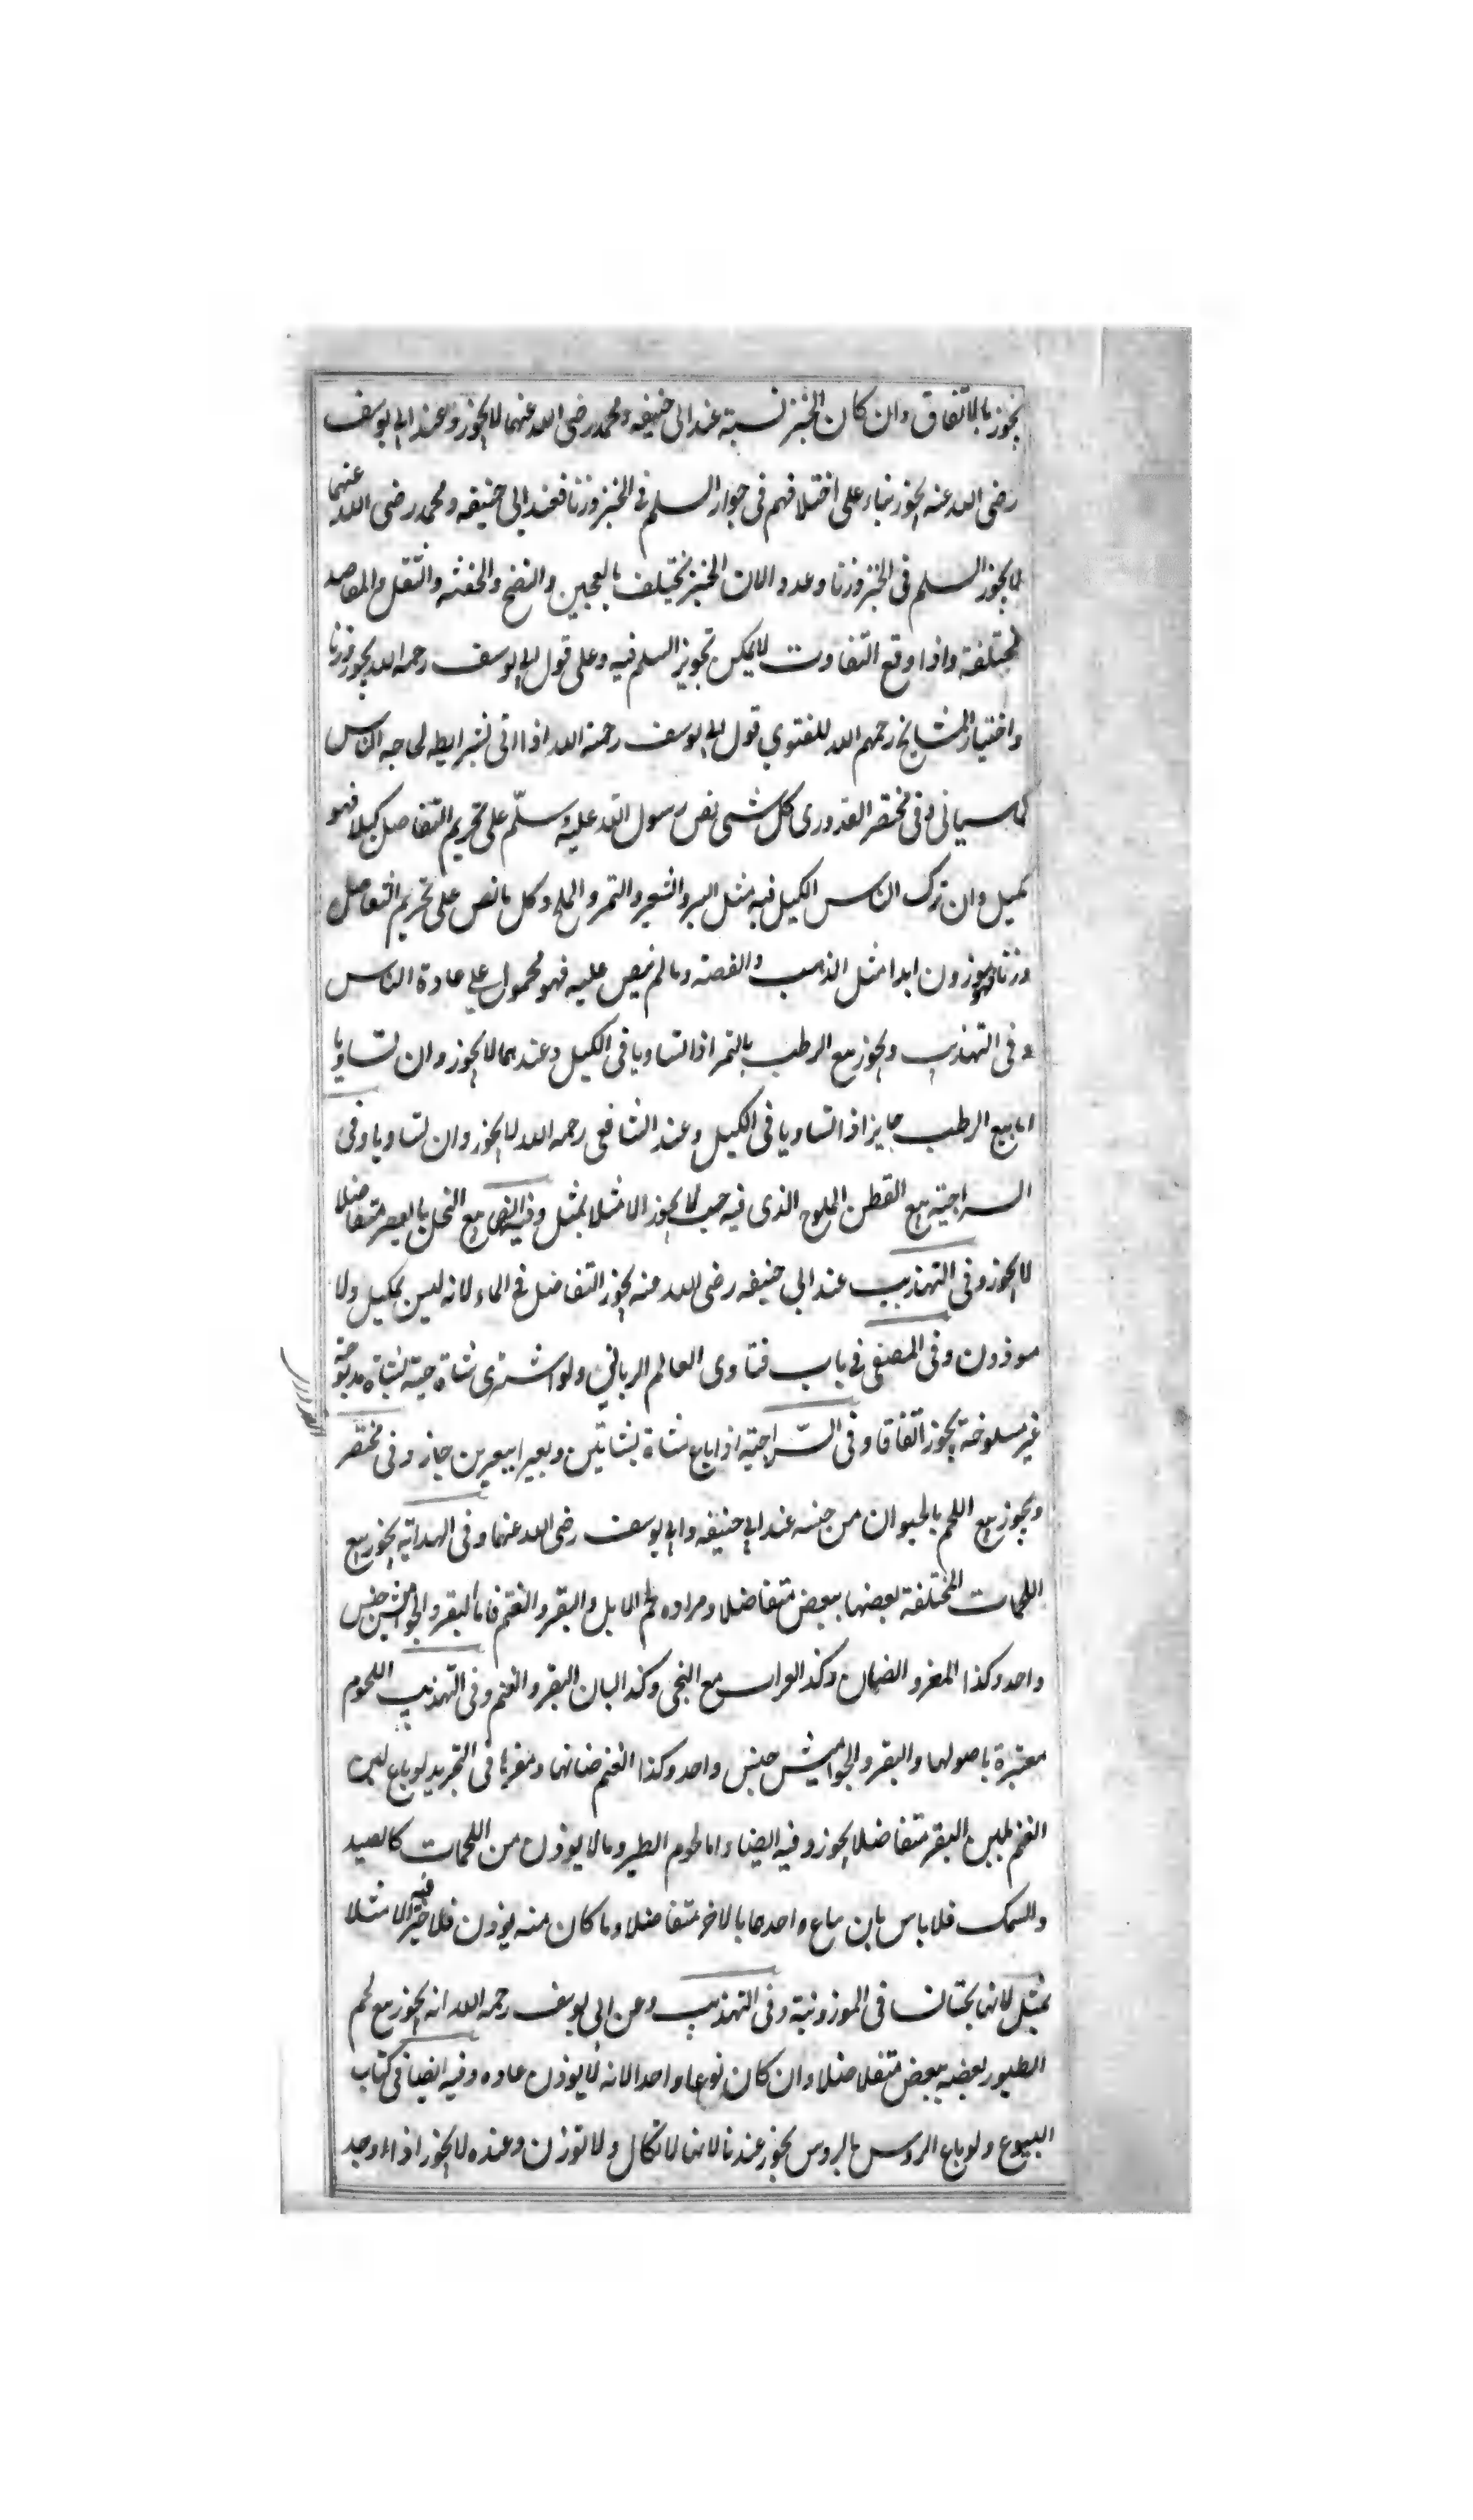 يجوز بالاتفاق وان كان الخبز نسية عند ابى حنيفه ومحمد رضى الله عنهما لا يجوز وعند ابى يوسف
رضى الله عنه يجوز بناء على اختلافهم فى جواز السلم فى الخبز وزنا فعند ابى حنيفه ومحمد رضى الله عنهما
لا يجوز السلم فى الخبز وزنا وعددا لان الخبز يختلف بالعجين والنضج والخفته والثقل والمقاصد
مختلفة واذا وقع التفاوت لا يمكن تجويز السلم فيه وعلى قول ابى يوسف رحمه الله يجوز وزنا
واختيار المشايخ رحمهم الله للفتوى قول ابى يوسف رحمة الله اذا اتى بشرايطه لحاجه الناس
كما سياتى وفى مختصر القدورى كل شى نص رسول الله عليه وسلّم على تحريم التفاضل كيلا فهو
مكيل وان ترك الناس الكيل فيه مثل البر والشعير والتمر والملح وكل ما نص على تحريم التفاضل
وزنا فهو موزون ابدا مثل الذهب والفضته وما لم ينص عليه فهو محمول على عادة الناس
وفى التهذيب ويجوز بيع الرطب بالتمر اذا تساويا فى الكيل وعندهما لا يجوز وان تساويا
اما بيع الرطب جايز اذا تساويا فى الكيل وعند الشافعى رحمه الله لا يجوز وان تساويا وفى
السراجية بيع القطن المحلوج الذى فيه حب لا يجوز الا مثلا بمثل وفيه ايضا بيع النخل بالعصير متفاضلا
لا يجوز وفى التهذيب عند ابى حنيفه رضى الله عنه يجوز التفاضل فى الماء لانه ليس بمكيل ولا
موزون وفى المصفى فى باب فتاوى العالم الربانى ولو اشترى شاة حية بشاة مذبوحة
غير مسلوخة يجوز اتفاقا وفى السّراجية اذا باع شاة بشاتين وبعيرا ببعيرين جاز وفى مختصر
ويجوز بيع اللحم بالحيوان من جنسه عند ابى حنيفه وابى يوسف رضى الله عنهما وفى الهداية يجوز بيع
اللحمات المختلفة بعضها ببعض متفاضلا ومراده لحم الابل والبقر والغنم فاما البقر والجواميش جنس
واحد وكذا المعز والضمان وكذ العراب مع البختى وكذ البان البقر والغنم وفى التهذيب اللحوم
معتبرة باصولها والبقر والجواميش جنس واحد وكذا الغنم ضانها ومعزها فى التجريد لو باع لبن
الغنم بلبن البقر متفاضلا يجوز وفيه ايضا اما لحوم الطير وما لا يوزن من اللحمات كالصيد
والسمك فلا باس بان يباع احدهما بالاخر متفاضلا وما كان منه يوزن فلا خير فيه الا مثلا
بمثل لانها يجتانسا فى الموزونية وفى التهذيب وعن ابى يوسف رحمه الله انه يجوز بيع لحم
الطيور بعضه ببعض متفاضلا وان كان نوعا واحدا لانه لا يوزن عاده وفيه ايضا فى كتاب
البيوع ولو باع الروس بالروس يجوز عندنا لانها لا تكال ولا توزن وعنده لا يجوز اذا وجد